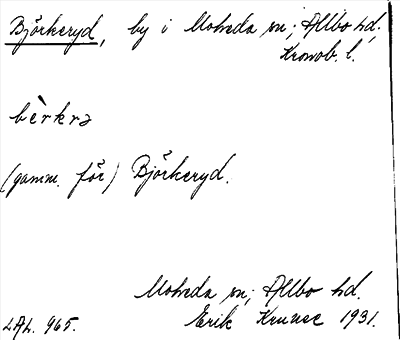 Björkeryd, by i Moheda sn; Allbo hd.
Kronob. l.
bèrkrə
(gamm. för) Björkeryd.
Moheda sn; Allbo hd.
LAL. 965. Erik 1931.